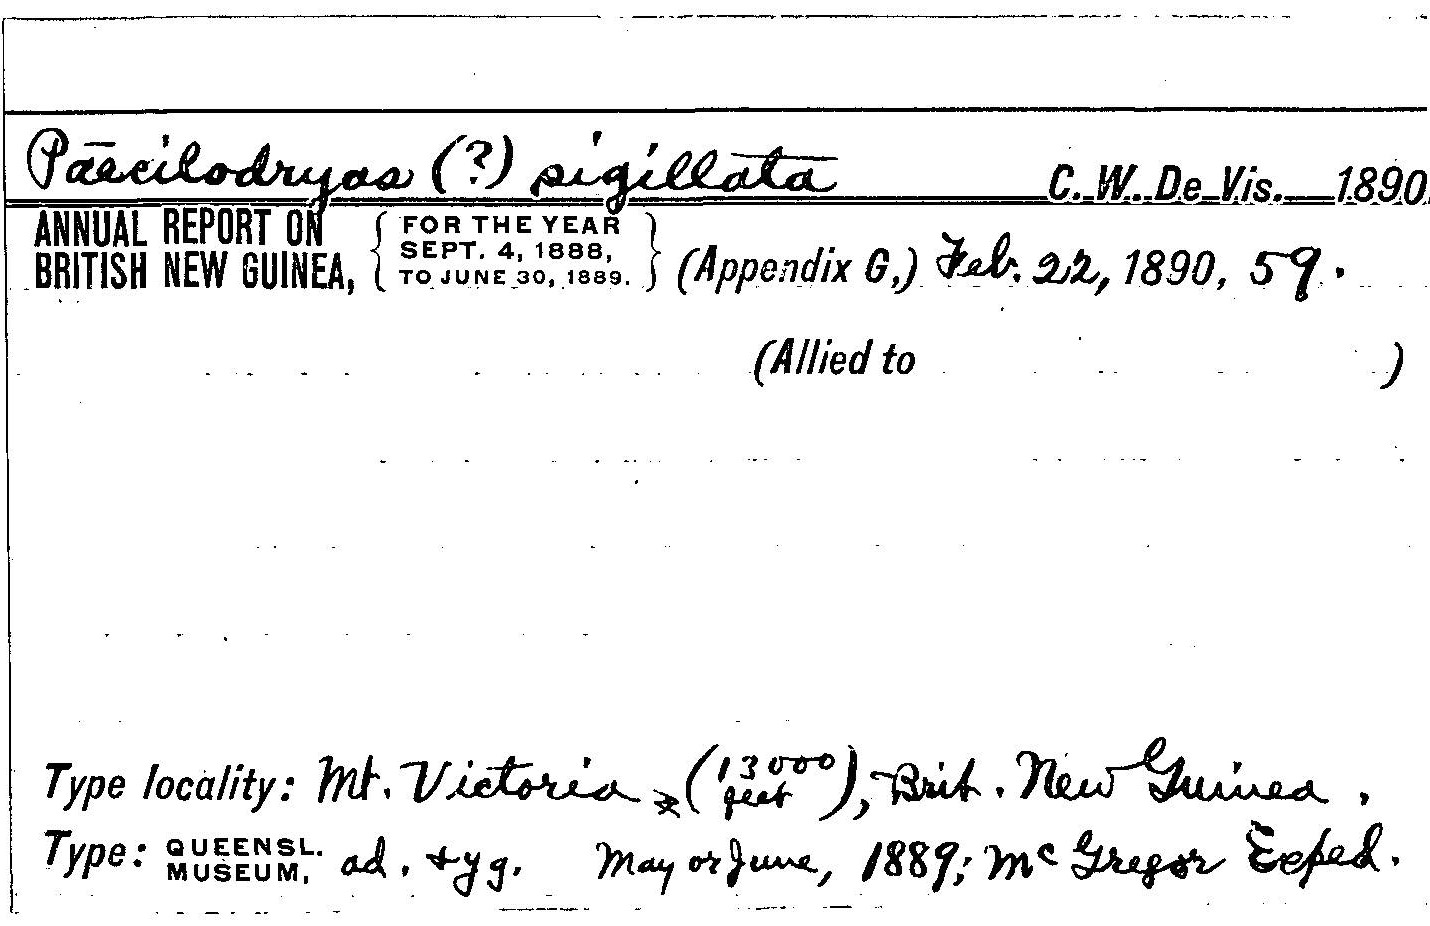 Paecilodryas (?) sigillata C. W. De Vis. 1890.
ANNUAL REPORT ON BRITISH NEW GUINEA, { FOR THE YEAR SEPT. 4, 1888, TO JUNE 30, 1889. } (Appendix G,) Feb. 22, 1890, 59.
(Allied to )
Type locality: Mt. Victoria (13000 feet), Brit. New Guinea.
Type: QUEENSL. MUSEUM, ad. + yg. May or June, 1889; McGregor Exped.